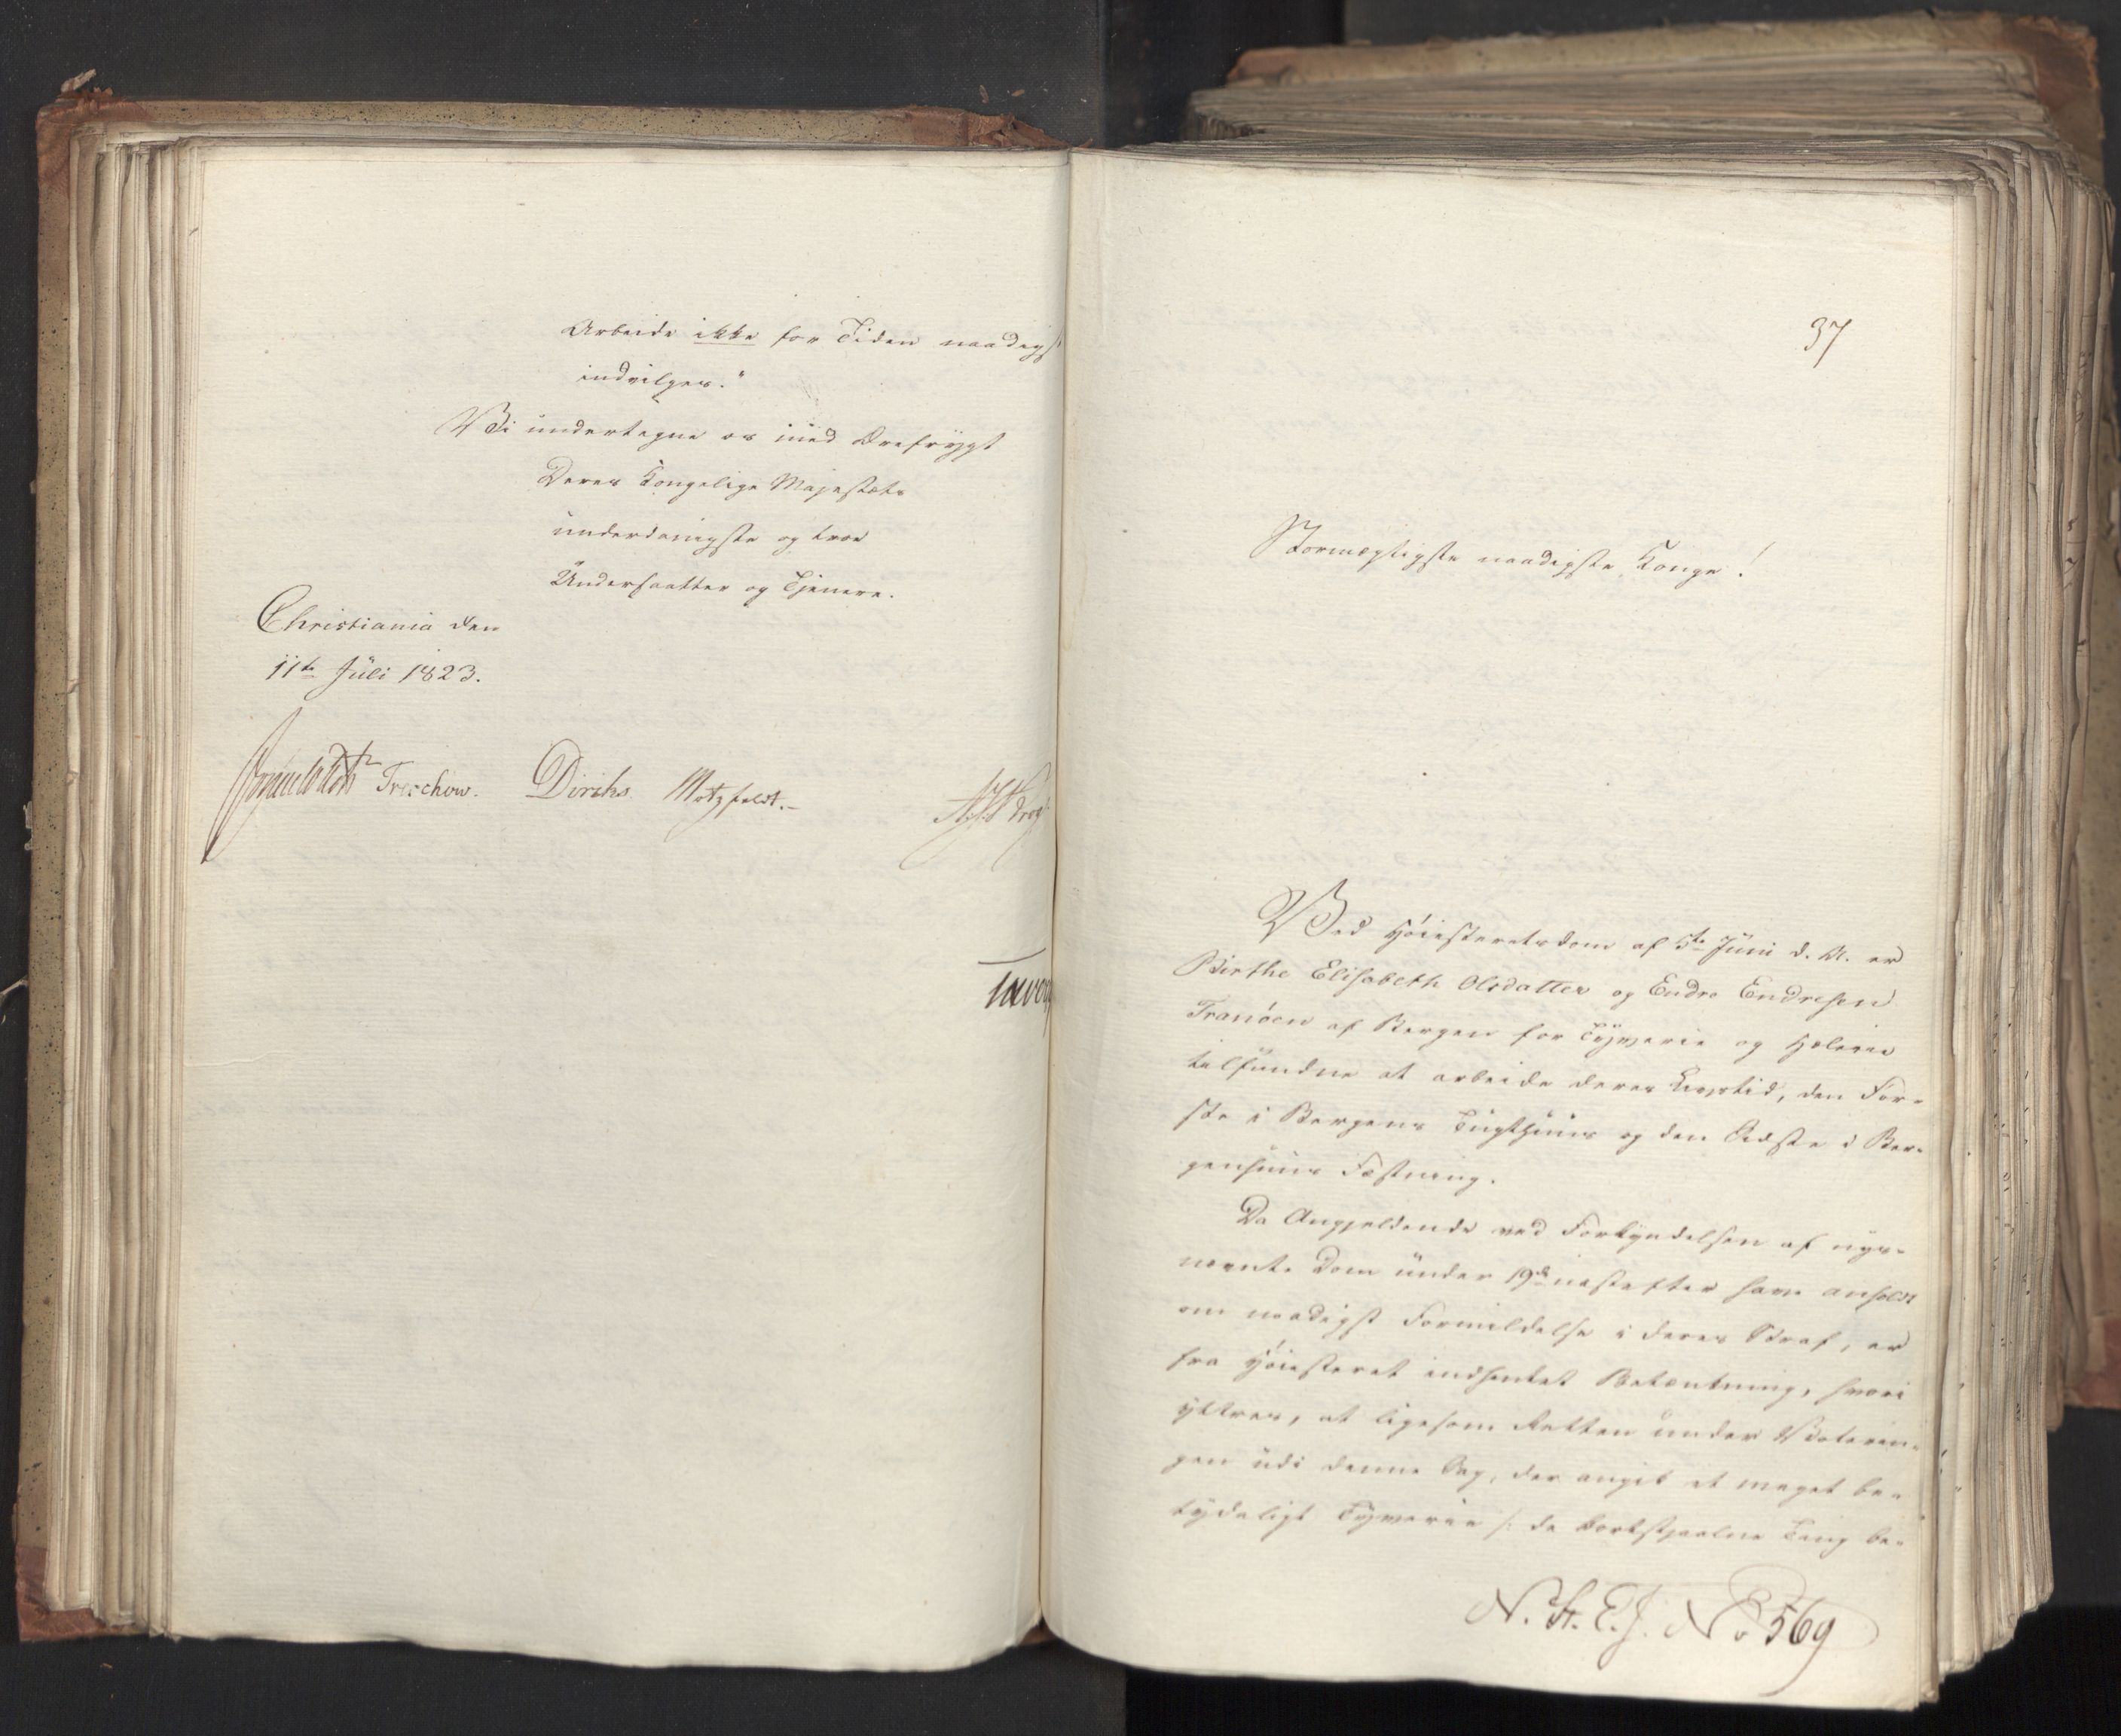 Arbeide ikke for Tiden naadigst
indvilges."
Vi undertegne os med Ærefrygt
Deres Kongelige Majestæts
underdanigste og troe
Undersaatter og Tjenere.
Christiania den
11te Juli 1823.
Treschow. Diriks Motzfeldt.-
37
Stormægtigste naadigste Konge!
Ved Høiesteretsdom af 5te Juni d. A. er
Birthe Elisabeth Olsdatter og Endre Endresen
Tranöen af Bergen for Tyverie og Hælerie
tilfundne at arbeide deres Livstid, den För-
ste i Bergens Tugthuus og den Sidste i Ber-
genhuus Fæstning.
Da Angjeldende ved Forkyndelsen af nys-
nævnte Dom under 19de næstefter have anholdt
om naadigst Formildelse i deres Straf, er
fra Høiesteret indhentet Betænkning, hvori
yttres, at ligesom Retten under Voterin-
gen udi denne Sag, der angik et meget be-
tydeligt Tyverie /: de bortstjaalne Ting be-
N. St. E. J. No 569